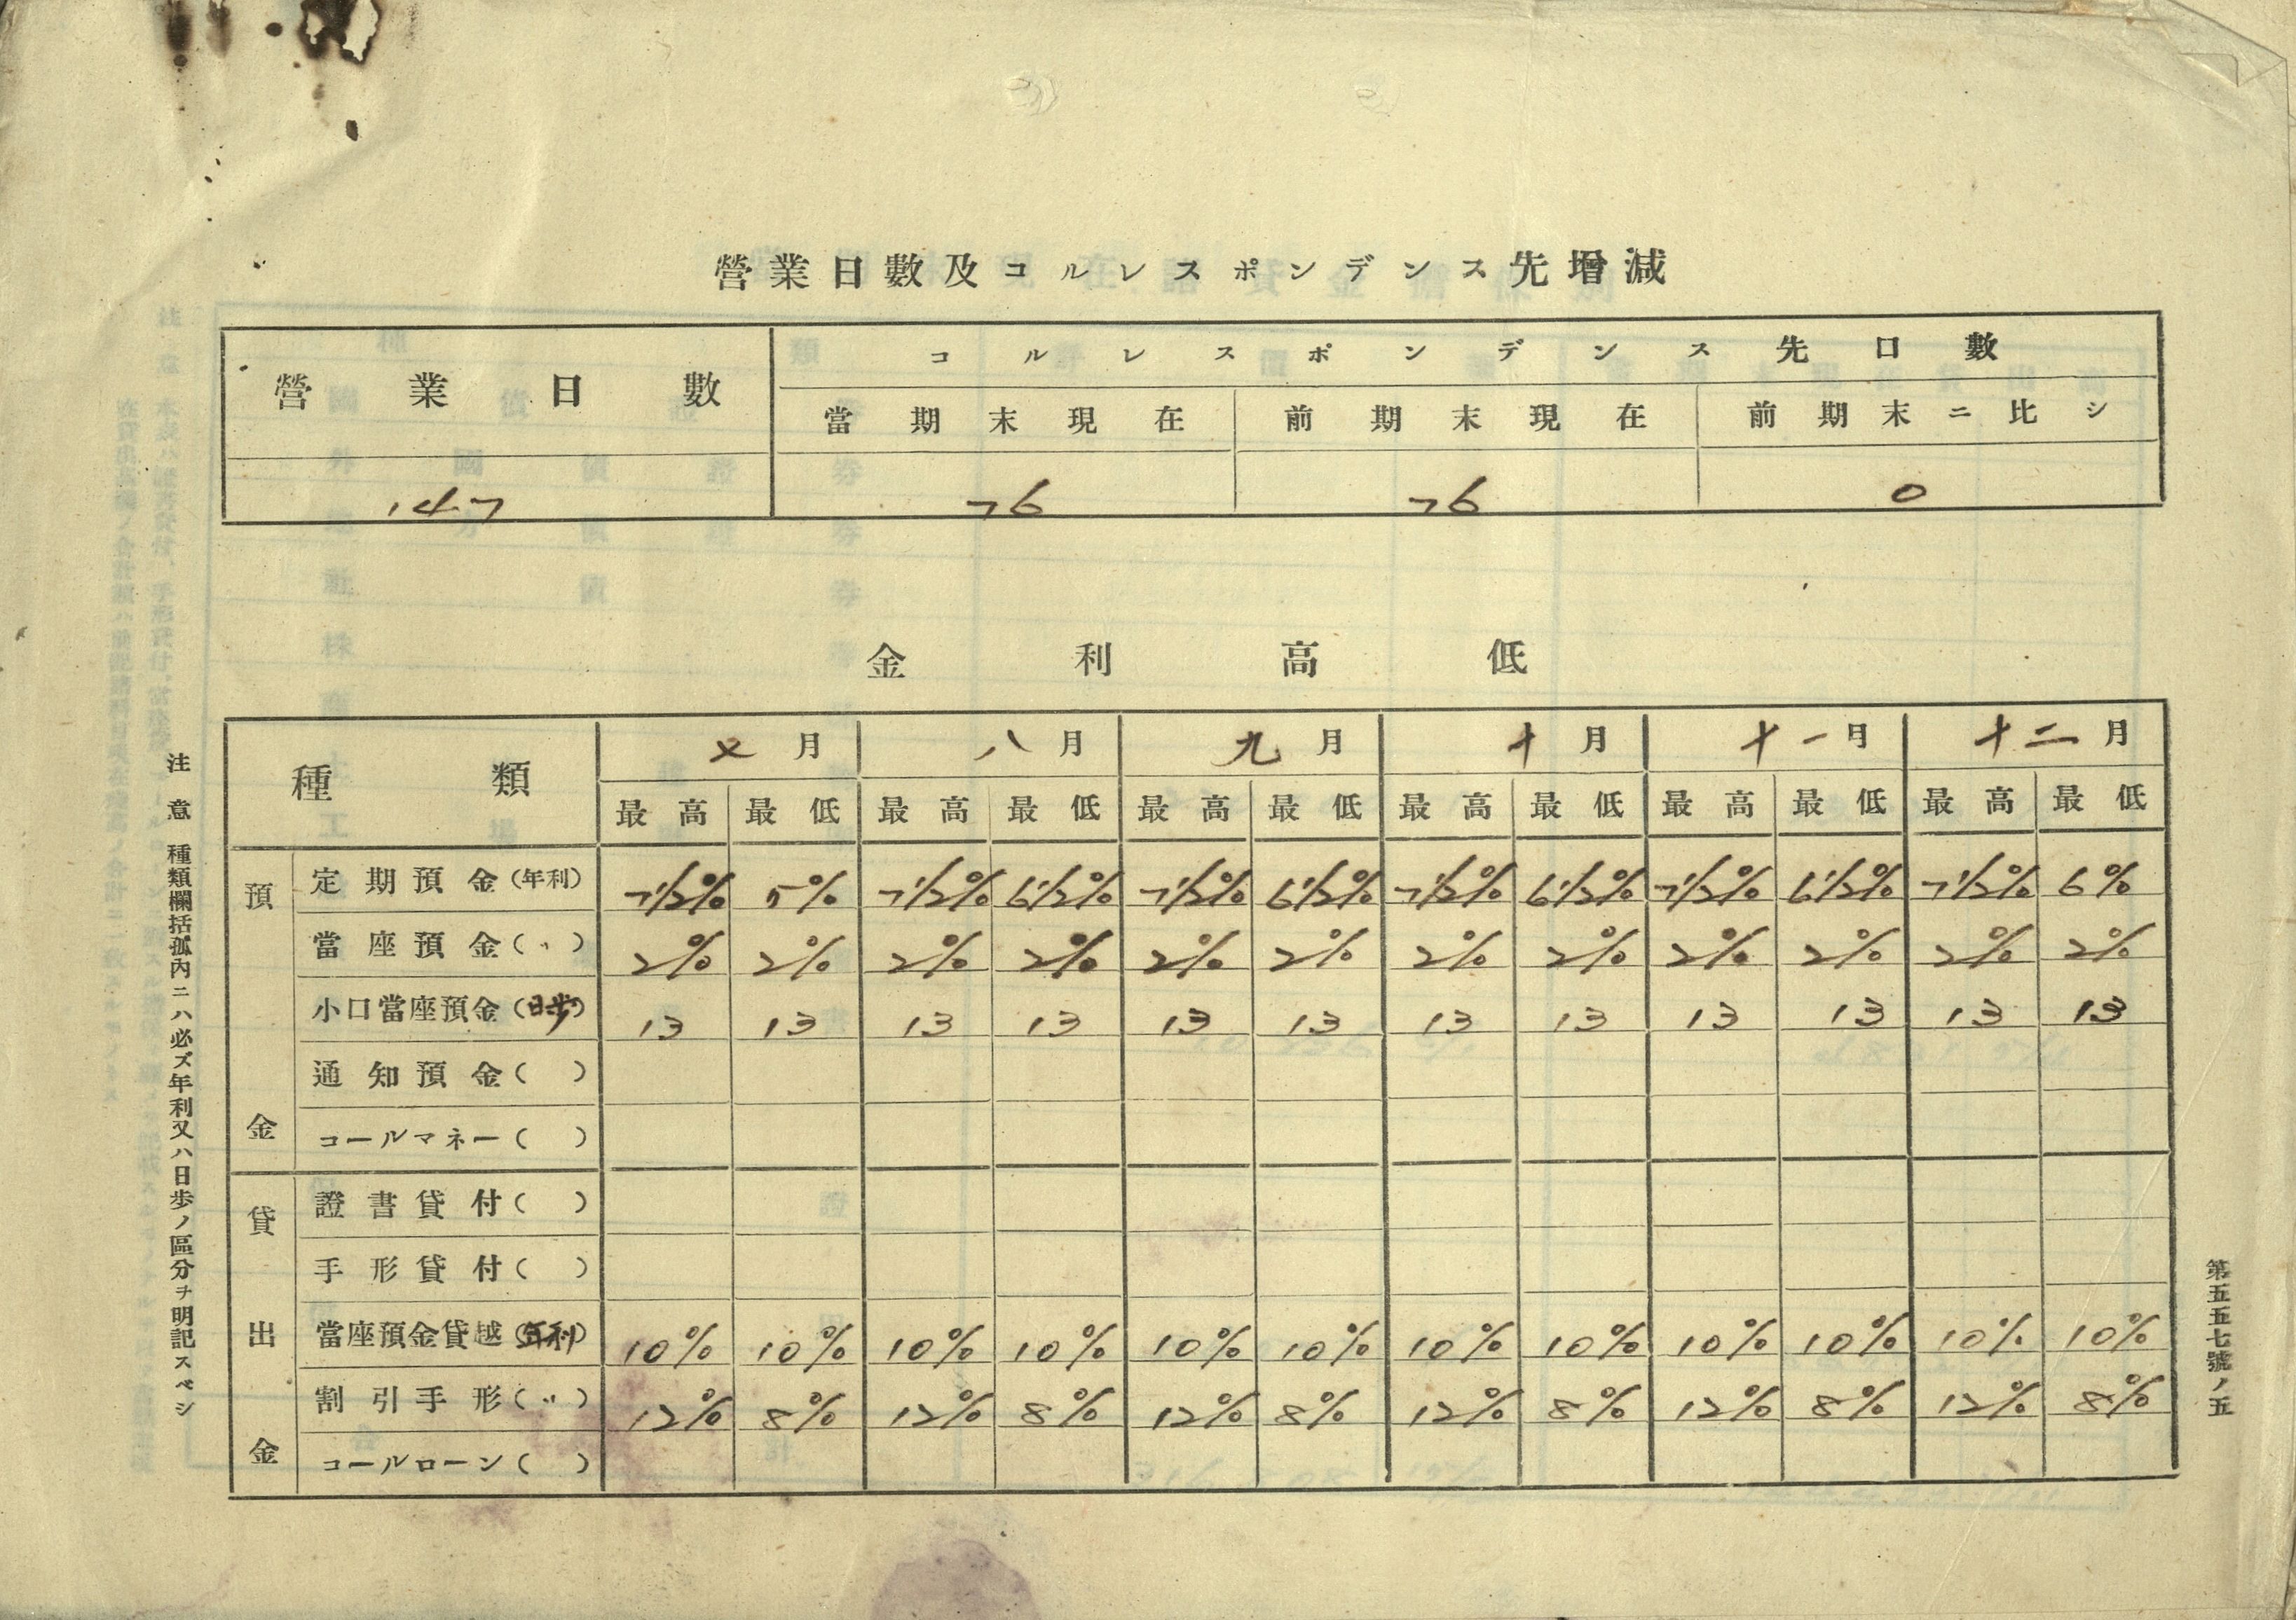 營業日數及コルレスポンデンス先增減
營業日數 コルレスポンデンス先口數
當期末現在 前期末現在 前期末ニ比シ
147 76 76 0
金利高低
種類 七月 八月 九月 十月 十一月 十二月
最高 最低 最高 最低 最高 最低 最高 最低 最高 最低 最高 最低
預金
定期預金(年利) 7 1/2% 5% 7 1/2% 6 1/2% 7 1/2% 6 1/2% 7 1/2% 6 1/2% 7 1/2% 6 1/2% 7 1/2% 6%
當座預金(〃) 2% 2% 2% 2% 2% 2% 2% 2% 2% 2% 2% 2%
小口當座預金(日步) 13 13 13 13 13 13 13 13 13 13 13 13
通知預金( )
コールマネー( )
貸出金
證書貸付( )
手形貸付( )
當座預金貸越(年利) 10% 10% 10% 10% 10% 10% 10% 10% 10% 10% 10% 10%
割引手形(〃) 12% 8% 12% 8% 12% 8% 12% 8% 12% 8% 12% 8%
コールローン( )
注意 種類欄括孤內ニハ必ズ年利又ハ日步ノ區分ヲ明記スベシ
第五五七號ノ五